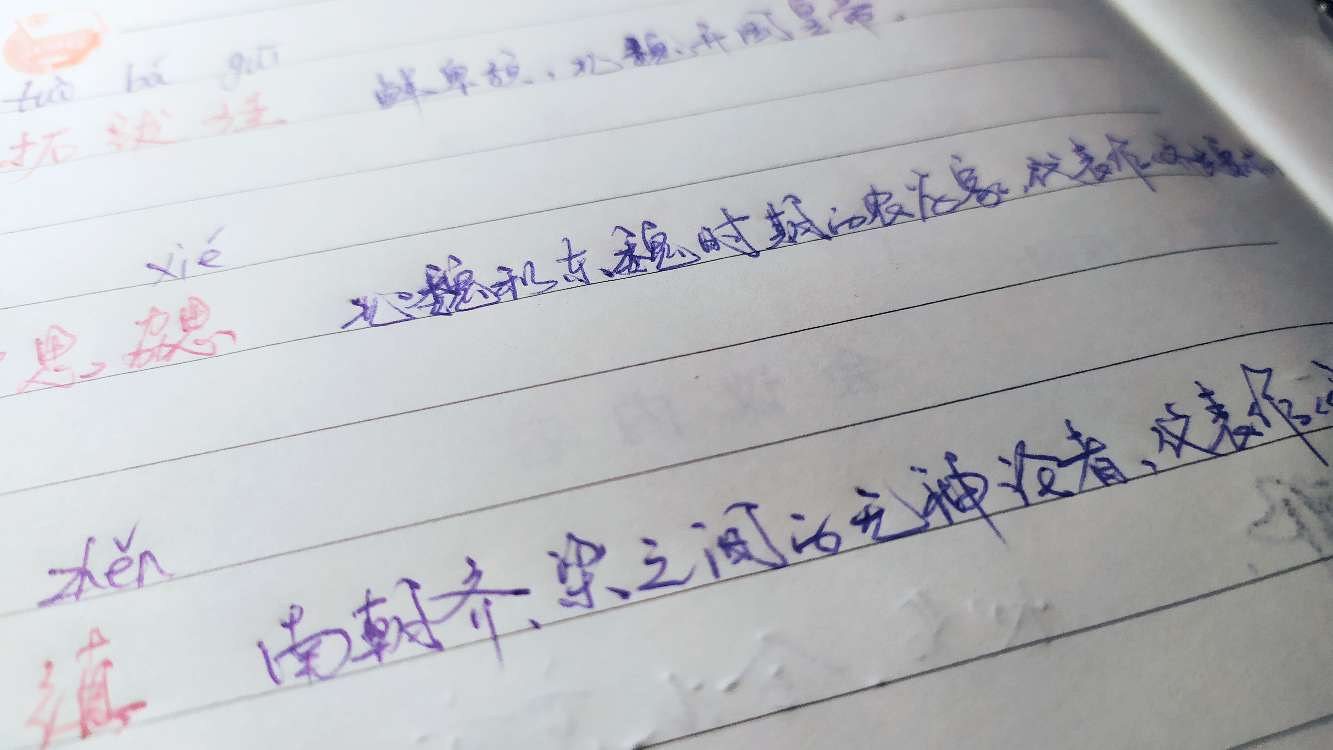 tuò bá guī
拓跋珪 鲜卑族、北魏、开国皇帝.
xié
思勰 北魏和东魏时期的农学家,代表作
zhěn
缜 南朝齐、梁之间的无神论者,代表作